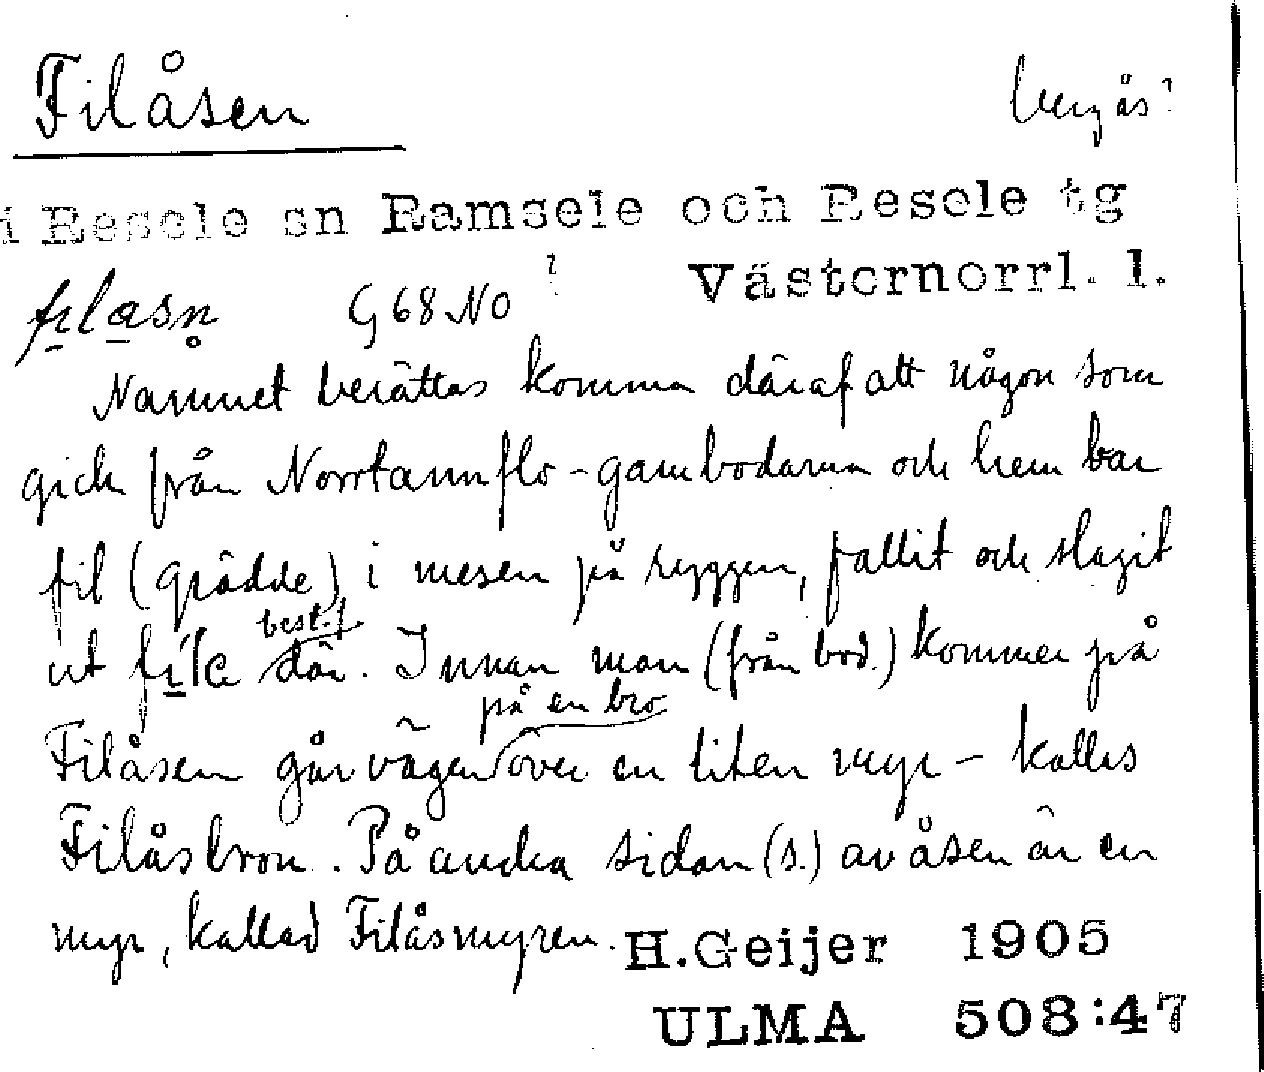 Filåsen bergås?
i Resele sn Ramsele och Resele tg
Västernorrl. l.
filåsn̥ G 68 NO ?
Namnet berättas komma däraf att någon som
gick från Norrtannflo-gambodarna och hem bar
fil (grädde) i mesen på ryggen, fallit och slagit
best. f.
ut fila där. Innan man (från bod.) kommer på
på en bro
Filåsen går vägen över en liten myr - kallas
Filåsbron. På andra sidan (s.) av åsen är en
myr, kallad Filåsmyren.
H. Geijer 1905
ULMA 508:47